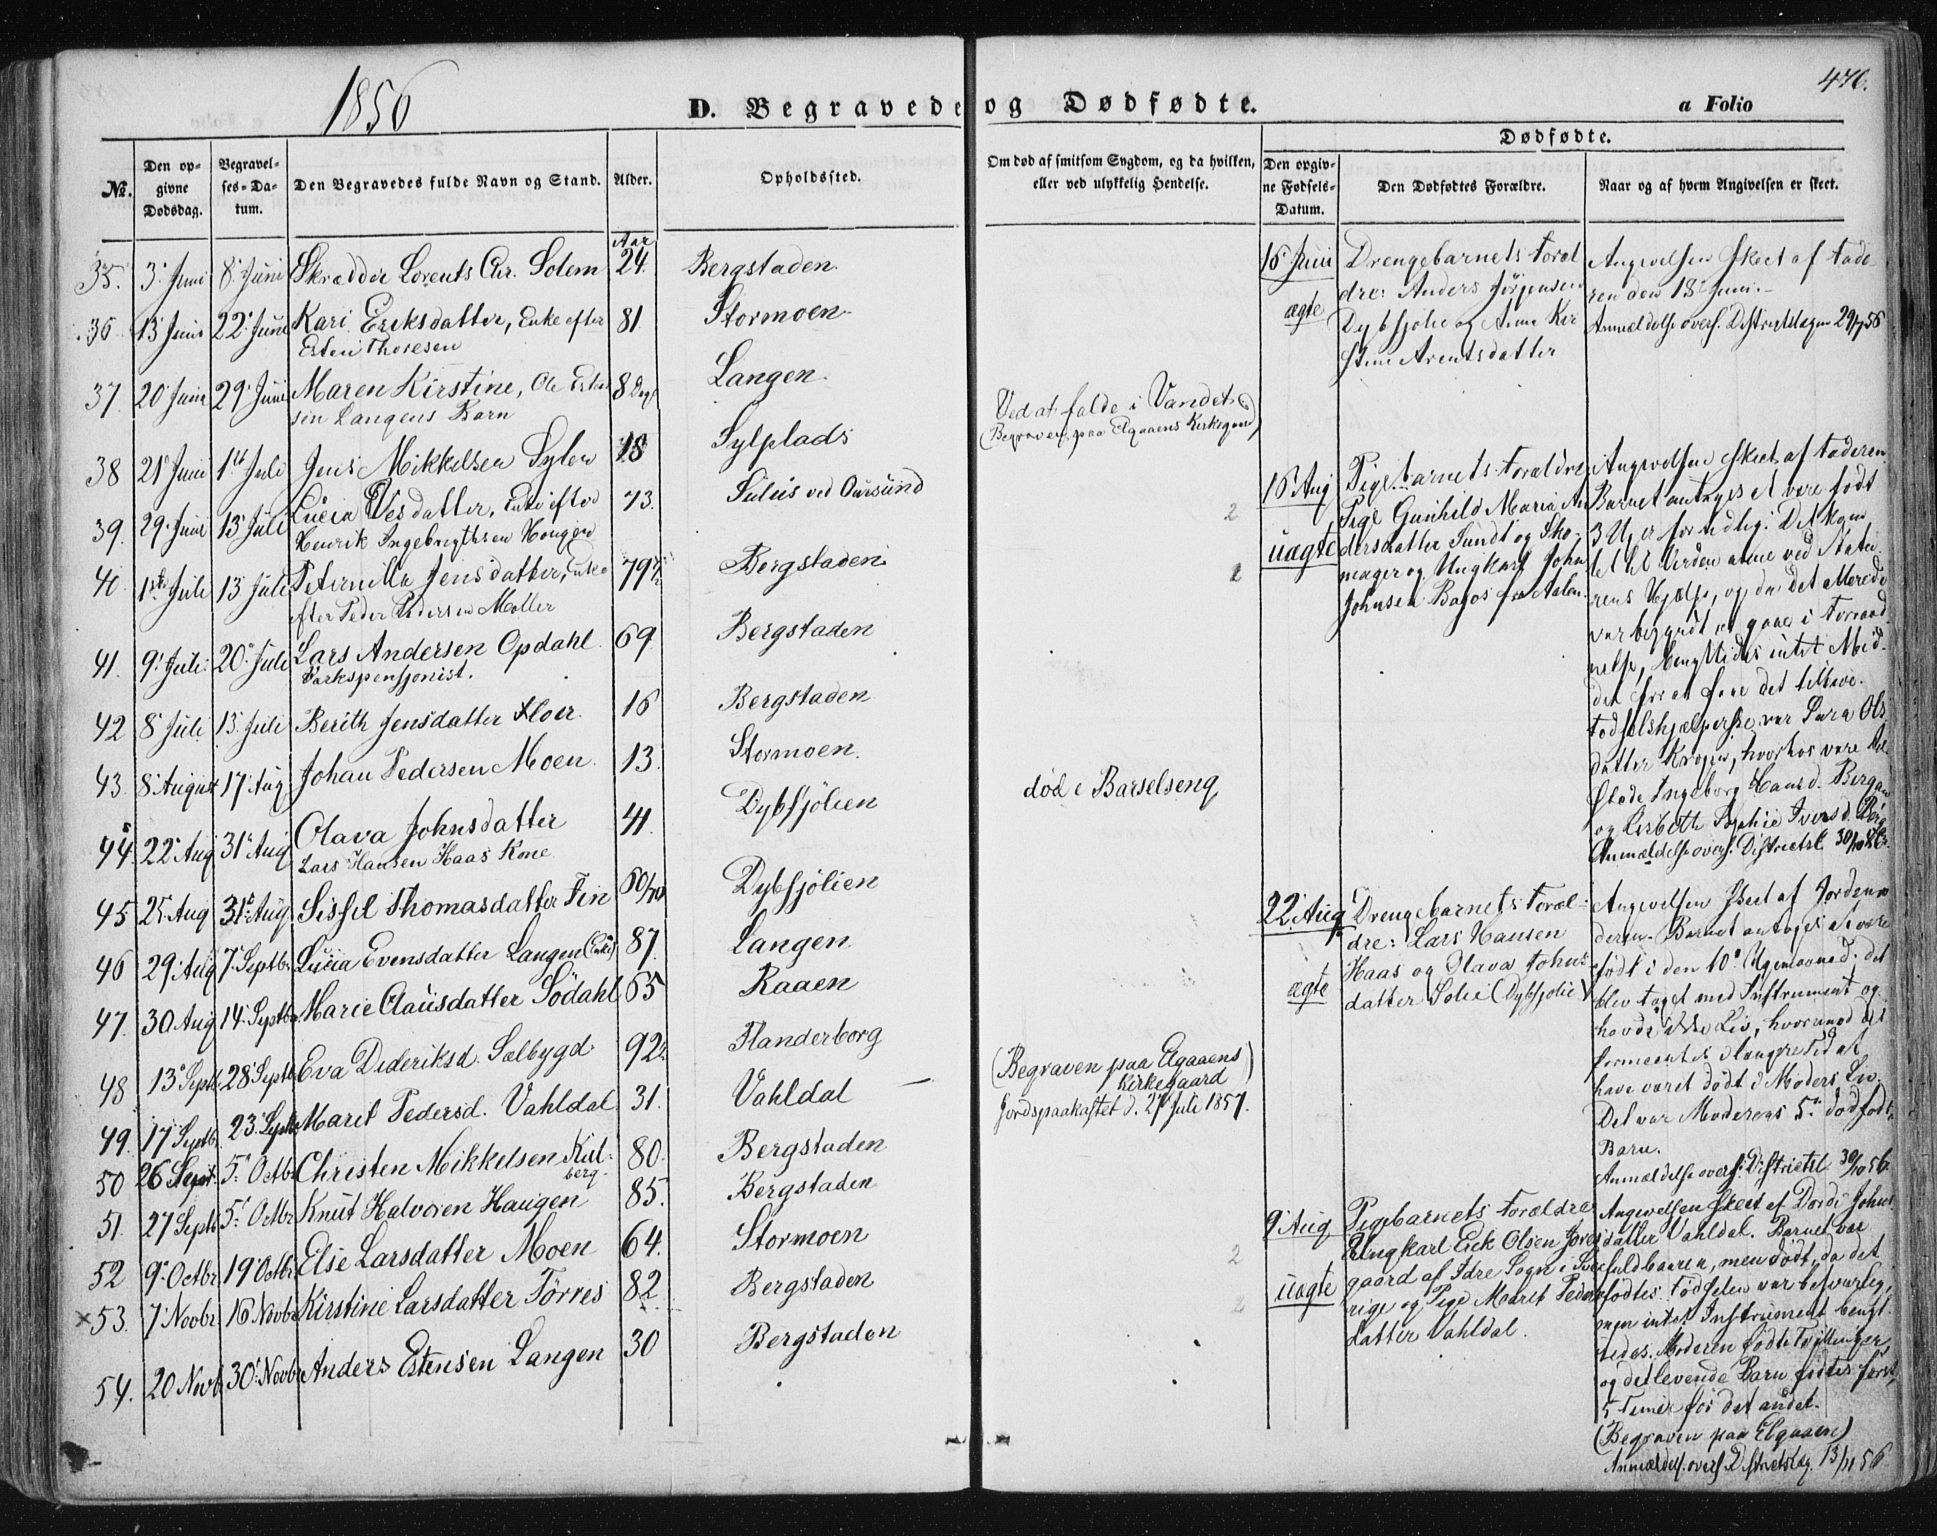 1856
D. Begravede og Dødfødte.
a Folio
470.
Dødfødte.
No.
Den opgivne Dødsdag.
Begravelses-Datum.
Den Begravedes fulde Navn og Stand.
Alder.
Opholdssted.
Om død af smitsom Sygdom, og da hvilken, eller ved ulykkelig Hendelse.
Den opgivne Fødsels-Datum.
Den Dødfødtes Forældre.
Naar og af hvem Angivelsen er skeet.
Aar
35. 3 Juni 8 Juni Skrædder Lorents Chr. Solem 24. Bergstaden.
36 13 Juni 22 Juni Kari Ericksdatter, Enke efter 81. Stormoen.
Esten Thoresen
37. 20 Juni 29 Juni Maren Kirstine, Ole Esten 8 Dage Langen.
sen Langens Barn
38 21 Juni 1te Juli Jens Mikkelsen Sylen 18 Sylplads
Ved at falde i Vandet
(Begraven paa Elgaaens Kirkegaard)
39. 29 Juni 13 Juli Lucia Olsdatter, Enke efter 73. Sulus ved Oursund
Henrik Ingebrigtsen Hougen
40 1ste Juli 13 Juli Peternilla Jensdatter, Enke 79 Bergstaden
efter Peder Pedersen Møller
41. 9 Juli 20 Juli Lars Andersen Opdahl 69. Bergstaden
Værkspensjonist.
42 8 Juli 13 Juli Berith Jensdatter Floer. 16 Bergstaden
43. 8 August 17 Aug Johan Pedersen Moen. 13. Stormoen.
44. 22 Aug 31 Aug Olava Johnsdatter 41. Dybsjølien
død i Barselseng
Lars Hansen Haas Kone
45 25 Aug 31 Aug Sissel Thomasdatter Fin 60/70 Dybsjølien
46 29 Aug 7 Septbr Lucia Evensdatter Langen (Enke) 87. Langen
47. 30 Aug 14 Septbr Marie Clausdatter Södahl 65 Raaen
48 13 Septb 28 Septb Eva Dideriksd. Sælbygd 92 Flanderborg
49. 17 Septb. 23 Septb Marit Pedersd. Vahldal 31. Vahldal —
(Begraven paa Elgaaens
Kirkegaard)
Jordspaakastet d. 27 Juli 1857.
50 26 Sept. 5 Octbr Christen Mikkelsen Kul- 80. Bergstaden
berg.
51. 27 Septb 5 Octbr Knut Halvorsen Haugen 85. Bergstaden
52 9 Octbr. 19 Octbr. Else Larsdatter Moen 64. Stormoen
× 53. 7 Novbr 16 Novbr Kirstine Larsdatter Törres 82. Bergstaden
54. 20 Novb. 30 Novbr Anders Estensen Langen 30 Bergstaden
16 Juni
ægte
Drengebarnets Foræl
dre: Anders Jörgensen
Dybsjolie og Anne Kir
stine Arentsdatter
Angivelsen skeet af Fade-
ren den 18 Juni.
Anmeldelse overs. Districtslægen 29/7 56
16 Aug
uægte
Pigebarnets Forældre
Pige Gunhild Maria An
dersdatter Sundt og Sko-
mager og Ungkarl John
Johnsen Bagos fra Aalen.
2
Angivelsen skeet af Faderen
Barnet antages at være født
3 Uger for tidlig. Det kom
til Verden alene ved Natu
rens Hjælp, og da det allerede
var begyndt at gaae i Forraad
nelse, benyttedes intet Mid
del for at faae det tillive.
Fødselshjælperske var Sara Ols
datter Krogen, hvorhos vare til
Stede Ingeborg Hansd. Bergan
og Lisbeth Sophie Iversd.
Anmældelse overs. Districtsl. 30/10 56
22 Aug
ægte
Drengebarnets Foræl-
dre: Lars Hansen
Haas og Olava Johns
datter Solie (Dybsjolie)
Angivelsen skeet af Jordemo
deren. Barnet antages at være
født i den 10 Ugemaaned. det
blev taget med Instrument og
havde ikke Liv, hvorimod det
formeentes i længere Tid at
have været dødt i Moders Liv.
Det var Moderens 5 dødfødte
Barn.
Anmældelse overs. Districtsl 30/10 56.
9 Aug
uægte
2
2
Pigebarnets Forældre
Ungkarl Erik Olsen Jores
gaard af Idre Sogn i Sve
rige og Pige Marit Peders
datter Vahldal.
Angivelsen skeet af Dordi Johns
datter Vahldal. Barnet var
fuldbaaren, men dødt, da det
fødtes. Fødselen var besværlig,
men intet Instrument benyt
tedes. Moderen fødte Tvillinger
og det levende Barn fødtes først,
5 Timer før det andet.
(Begraven paa Elgaaen)
Anmældels. overs. Districtslæg. 13/11 56